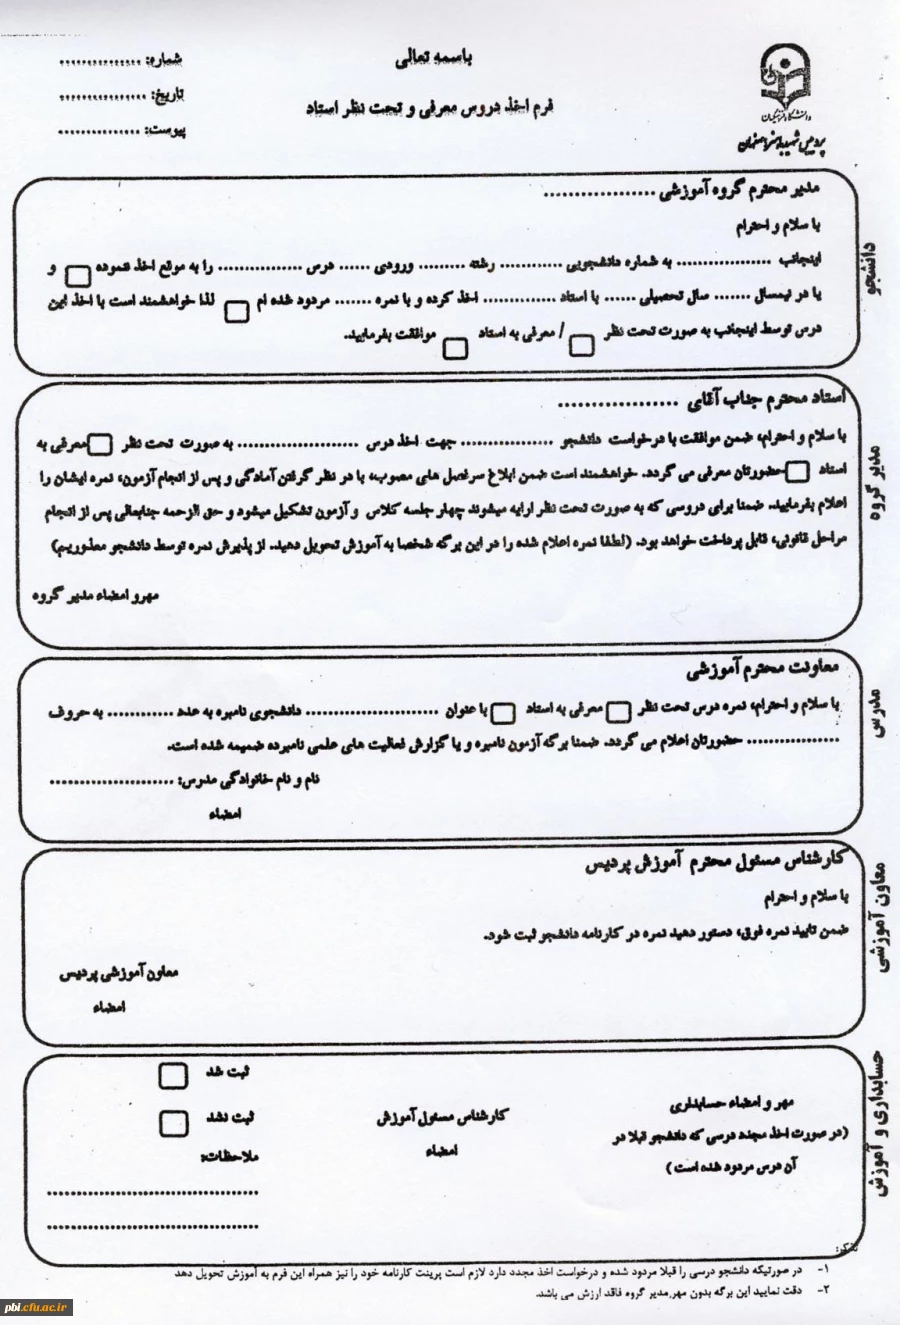 باسمه تعالی
فرم اخذ دروس معرفی و تحت نظر استاد
شماره: ................
تاریخ: .................
پیوست: ................
دانشگاه فرهنگیان
پردیس شهید باهنر اصفهان
دانشجو
مدیر محترم گروه آموزشی ..................
با سلام و احترام
اینجانب ................. به شماره دانشجویی ............ رشته ......... ورودی ...... درس ............... را به موقع اخذ ننموده □ و
یا در نیمسال ....... سال تحصیلی ...... با استاد ............. اخذ کرده و با نمره ....... مردود شده ام □ لذا خواهشمند است با اخذ این
درس توسط اینجانب به صورت تحت نظر □ / معرفی به استاد □ موافقت بفرمایید.
مدیر گروه
استاد محترم جناب آقای ..................
با سلام و احترام، ضمن موافقت با درخواست دانشجو ................. جهت اخذ درس ...................... به صورت تحت نظر □ معرفی به
استاد □ حضورتان معرفی می گردد. خواهشمند است ضمن ابلاغ سرفصل های مصوب، با در نظر گرفتن آمادگی و پس از انجام آزمون، نمره ایشان را
اعلام بفرمایید. ضمنا برای دروسی که به صورت تحت نظر ارایه میشوند چهار جلسه کلاس و آزمون تشکیل میشود و حق الزحمه جنابعالی پس از انجام
مراحل قانونی، قابل پرداخت خواهد بود. (لطفا نمره اعلام شده را در این برگه شخصا به آموزش تحویل دهید. از پذیرش نمره توسط دانشجو معذوریم)
مهر و امضاء مدیر گروه
مدرس
معاونت محترم آموزشی
با سلام و احترام، نمره درس تحت نظر □ معرفی به استاد □ با عنوان ........................ دانشجوی نامبره به عدد ............ به حروف
................. حضورتان اعلام می گردد. ضمنا برگه آزمون نامبره و یا گزارش فعالیت های علمی نامبرده ضمیمه شده است.
نام و نام خانوادگی مدرس: .......................
امضاء
معاون آموزشی
کارشناس مسئول محترم آموزش پردیس
با سلام و احترام
ضمن تایید نمره فوق، دستور دهید نمره در کارنامه دانشجو ثبت شود.
معاون آموزشی پردیس
امضاء
حسابداری و آموزش
مهر و امضاء حسابداری
(در صورت اخذ مجدد درسی که دانشجو قبلا در
آن درس مردود شده است)
کارشناس مسئول آموزش
امضاء
ثبت شد □
ثبت نشد □
ملاحظات:
......................................
......................................
تذکر:
۱- در صورتیکه دانشجو درسی را قبلا مردود شده و درخواست اخذ مجدد دارد لازم است پرینت کارنامه خود را نیز همراه این فرم به آموزش تحویل دهد
۲- دقت نمایید این برگه بدون مهر مدیر گروه فاقد ارزش می باشد.
pbi.cfu.ac.ir